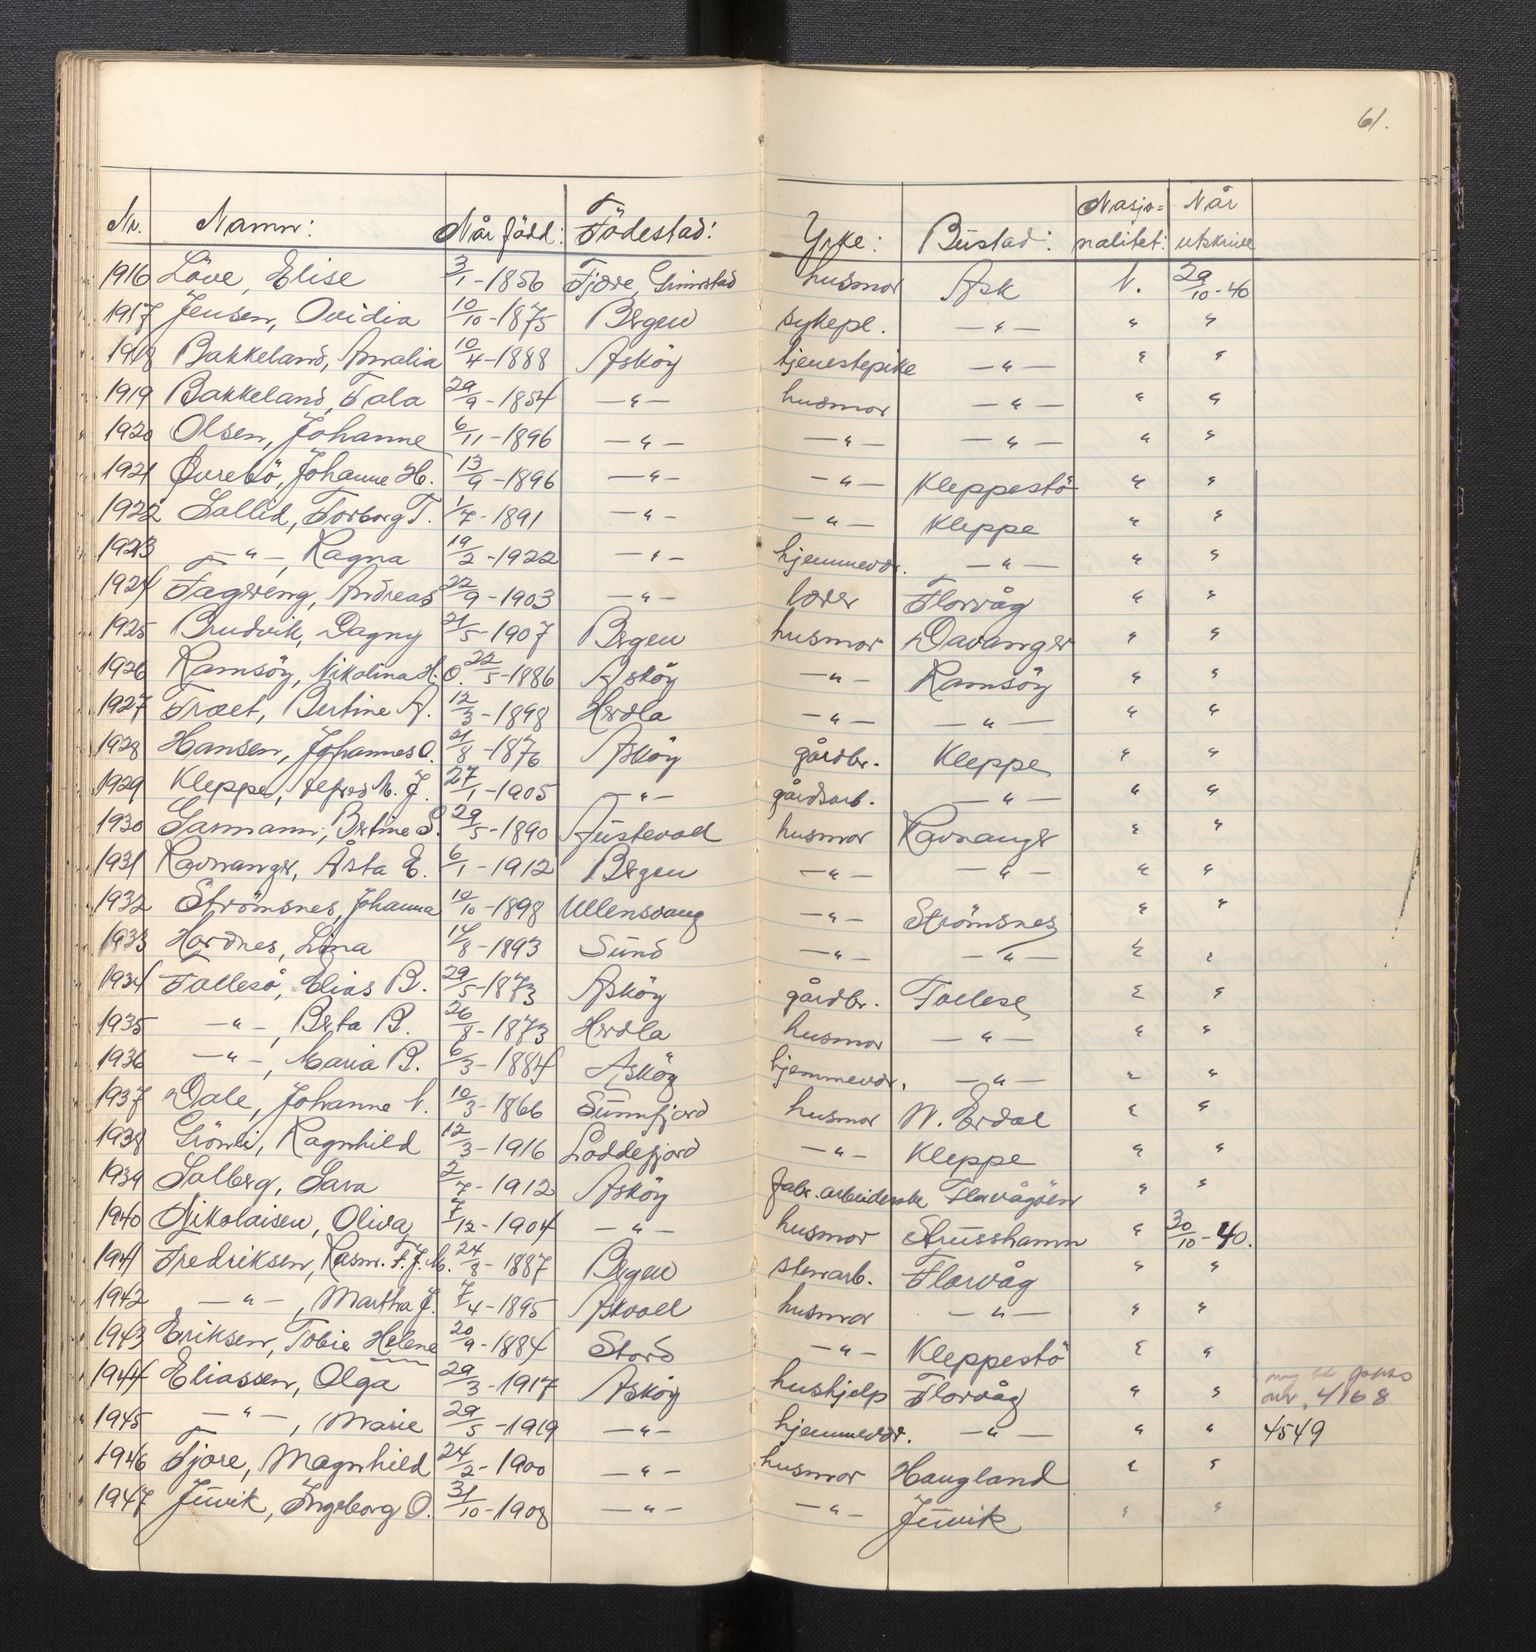 61.
Nr. Namn: Når född: Födestad: Yrke: Bustad: Nasjo=nalitet: Når utskrive
1916 Löve, Elise 3/1-1856 Fjære, Grimstad husmor Ask N. 29/10-40
1917 Jensen, Ovidia 10/10-1875 Bergen sykepl. —"— " "
1918 Bakkeland, Amalia 10/4-1888 Asköy tjenestepike —"— " "
1919 Bakkeland, Tala 29/9-1854 —"— husmor —"— " "
1920 Olsen, Johanne 6/11-1896 —"— —"— —"— " "
1921 Øvrebö, Johanne H. 13/9-1896 —"— —"— Kleppestö " "
1922 Sallid, Torborg T. 1/7-1891 —"— —"— Kleppe " "
1923 —"—, Ragna 19/2-1922 —"— hjemmevær. —"— " "
1924 Fagereng, Andreas 22/9-1903 —"— lærer Florvåg " "
1925 Brudvik, Dagny 21/5-1907 Bergen husmor Davanger " "
1926 Ramsöy, Nikolina H. O. 22/5-1886 Asköy —"— Ramsöy " "
1927 Træet, Bertine A. 12/3-1898 Herdla —"— —"— " "
1928 Hansen, Johannes O. 21/8-1876 Asköy gårdbr. Kleppe " "
1929 Kleppe, Alfred M. J. 27/1-1905 —"— gårdsarb. —"— " "
1930 Sarmann, Bertine S. 29/5-1890 Austevoll husmor Ravnanger " "
1931 Ravnanger, Åsta E. 6/1-1912 Bergen —"— —"— " "
1932 Strömsnes, Johanna 10/10-1898 Ullensvang —"— Strömsnes " "
1933 Hordnes, Lina 14/8-1893 Sund —"— —"— " "
1934 Follesö, Elias B. 29/5-1873 Asköy gårdbr. Follese " "
1935 —"—, Berta B. 26/8-1873 Herdla husmor —"— " "
1936 —"—, Maria B. 6/3-1884 Asköy hjemmevær. —"— " "
1937 Dale, Johanne N. 10/3-1866 Sunnfjord husmor N. Erdal " "
1938 Grönli, Ragnhild 12/3-1916 Loddefjord —"— Kleppe " "
1939 Solberg, Sara 2/7-1912 Asköy fabr.arbeiderske Florvågöen " "
1940 Nikolaisen, Oliva 7/12-1904 —"— husmor Strusshamn " 30/10-40.
1941 Fredriksen, Rasm. F. J. M. 24/8-1887 Bergen stenarb. Florvåg " "
1942 —"—, Martha J. 7/4-1895 Askvoll husmor —"— " "
1943 Eriksen, Tobie Helene 20/9-1884 Stord —"— Kleppestö " "
1944 Eliassen, Olga 29/3-1917 Asköy hushjelp Florvåg " " nr. 4168
1945 —"—, Marie 29/5-1919 —"— hjemmevær. —"— " " 4549
1946 Fjære, Magnhild 24/2-1900 —"— husmor Haugland " "
1947 Juvik, Ingeborg O. 31/10-1908 —"— —"— Juvik " "